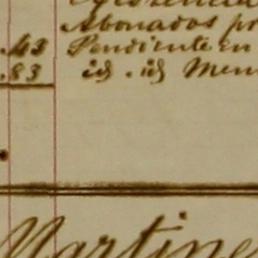 Abonados pr
.43 Pendiente en
.83 id . id Men
Martine